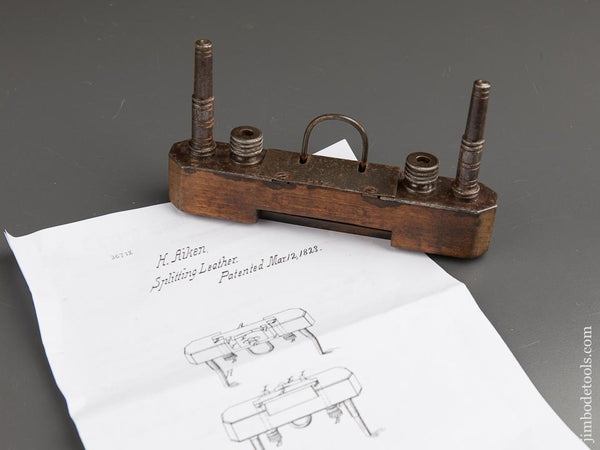 H. Aiken.
Splitting Leather.
Patented Mar. 12, 1823.
jimbodetools.com